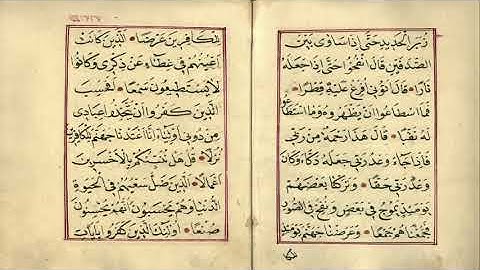 زُبَرَ الْحَدِيدِ حَتَّى إِذَا سَاوَى بَيْنَ
الصَّدَفَيْنِ قَالَ انْفُخُوا حَتَّى إِذَا جَعَلَهُ
نَارًا قَالَ آتُونِي أُفْرِغْ عَلَيْهِ قِطْرًا
فَمَا اسْطَاعُوا أَنْ يَظْهَرُوهُ وَمَا اسْتَطَاعُوا
لَهُ نَقْبًا قَالَ هَذَا رَحْمَةٌ مِنْ رَبِّي
فَإِذَا جَاءَ وَعْدُ رَبِّي جَعَلَهُ دَكَّاءَ وَكَانَ
وَعْدُ رَبِّي حَقًّا وَتَرَكْنَا بَعْضَهُمْ
يَوْمَئِذٍ يَمُوجُ فِي بَعْضٍ وَنُفِخَ فِي الصُّورِ
فَجَمَعْنَاهُمْ جَمْعًا وَعَرَضْنَا جَهَنَّمَ يَوْمَئِذٍ
لِلْكَافِرِينَ عَرْضًا الَّذِينَ كَانَتْ
أَعْيُنُهُمْ فِي غِطَاءٍ عَنْ ذِكْرِي وَكَانُوا
لَا يَسْتَطِيعُونَ سَمْعًا أَفَحَسِبَ
الَّذِينَ كَفَرُوا أَنْ يَتَّخِذُوا عِبَادِي
مِنْ دُونِي أَوْلِيَاءَ إِنَّا أَعْتَدْنَا جَهَنَّمَ لِلْكَافِرِينَ
نُزُلًا قُلْ هَلْ نُنَبِّئُكُمْ بِالْأَخْسَرِينَ
أَعْمَالًا الَّذِينَ ضَلَّ سَعْيُهُمْ فِي الْحَيٰوةِ
الدُّنْيَا وَهُمْ يَحْسَبُونَ أَنَّهُمْ يُحْسِنُونَ
صُنْعًا أُولَئِكَ الَّذِينَ كَفَرُوا بِآيَاتِ